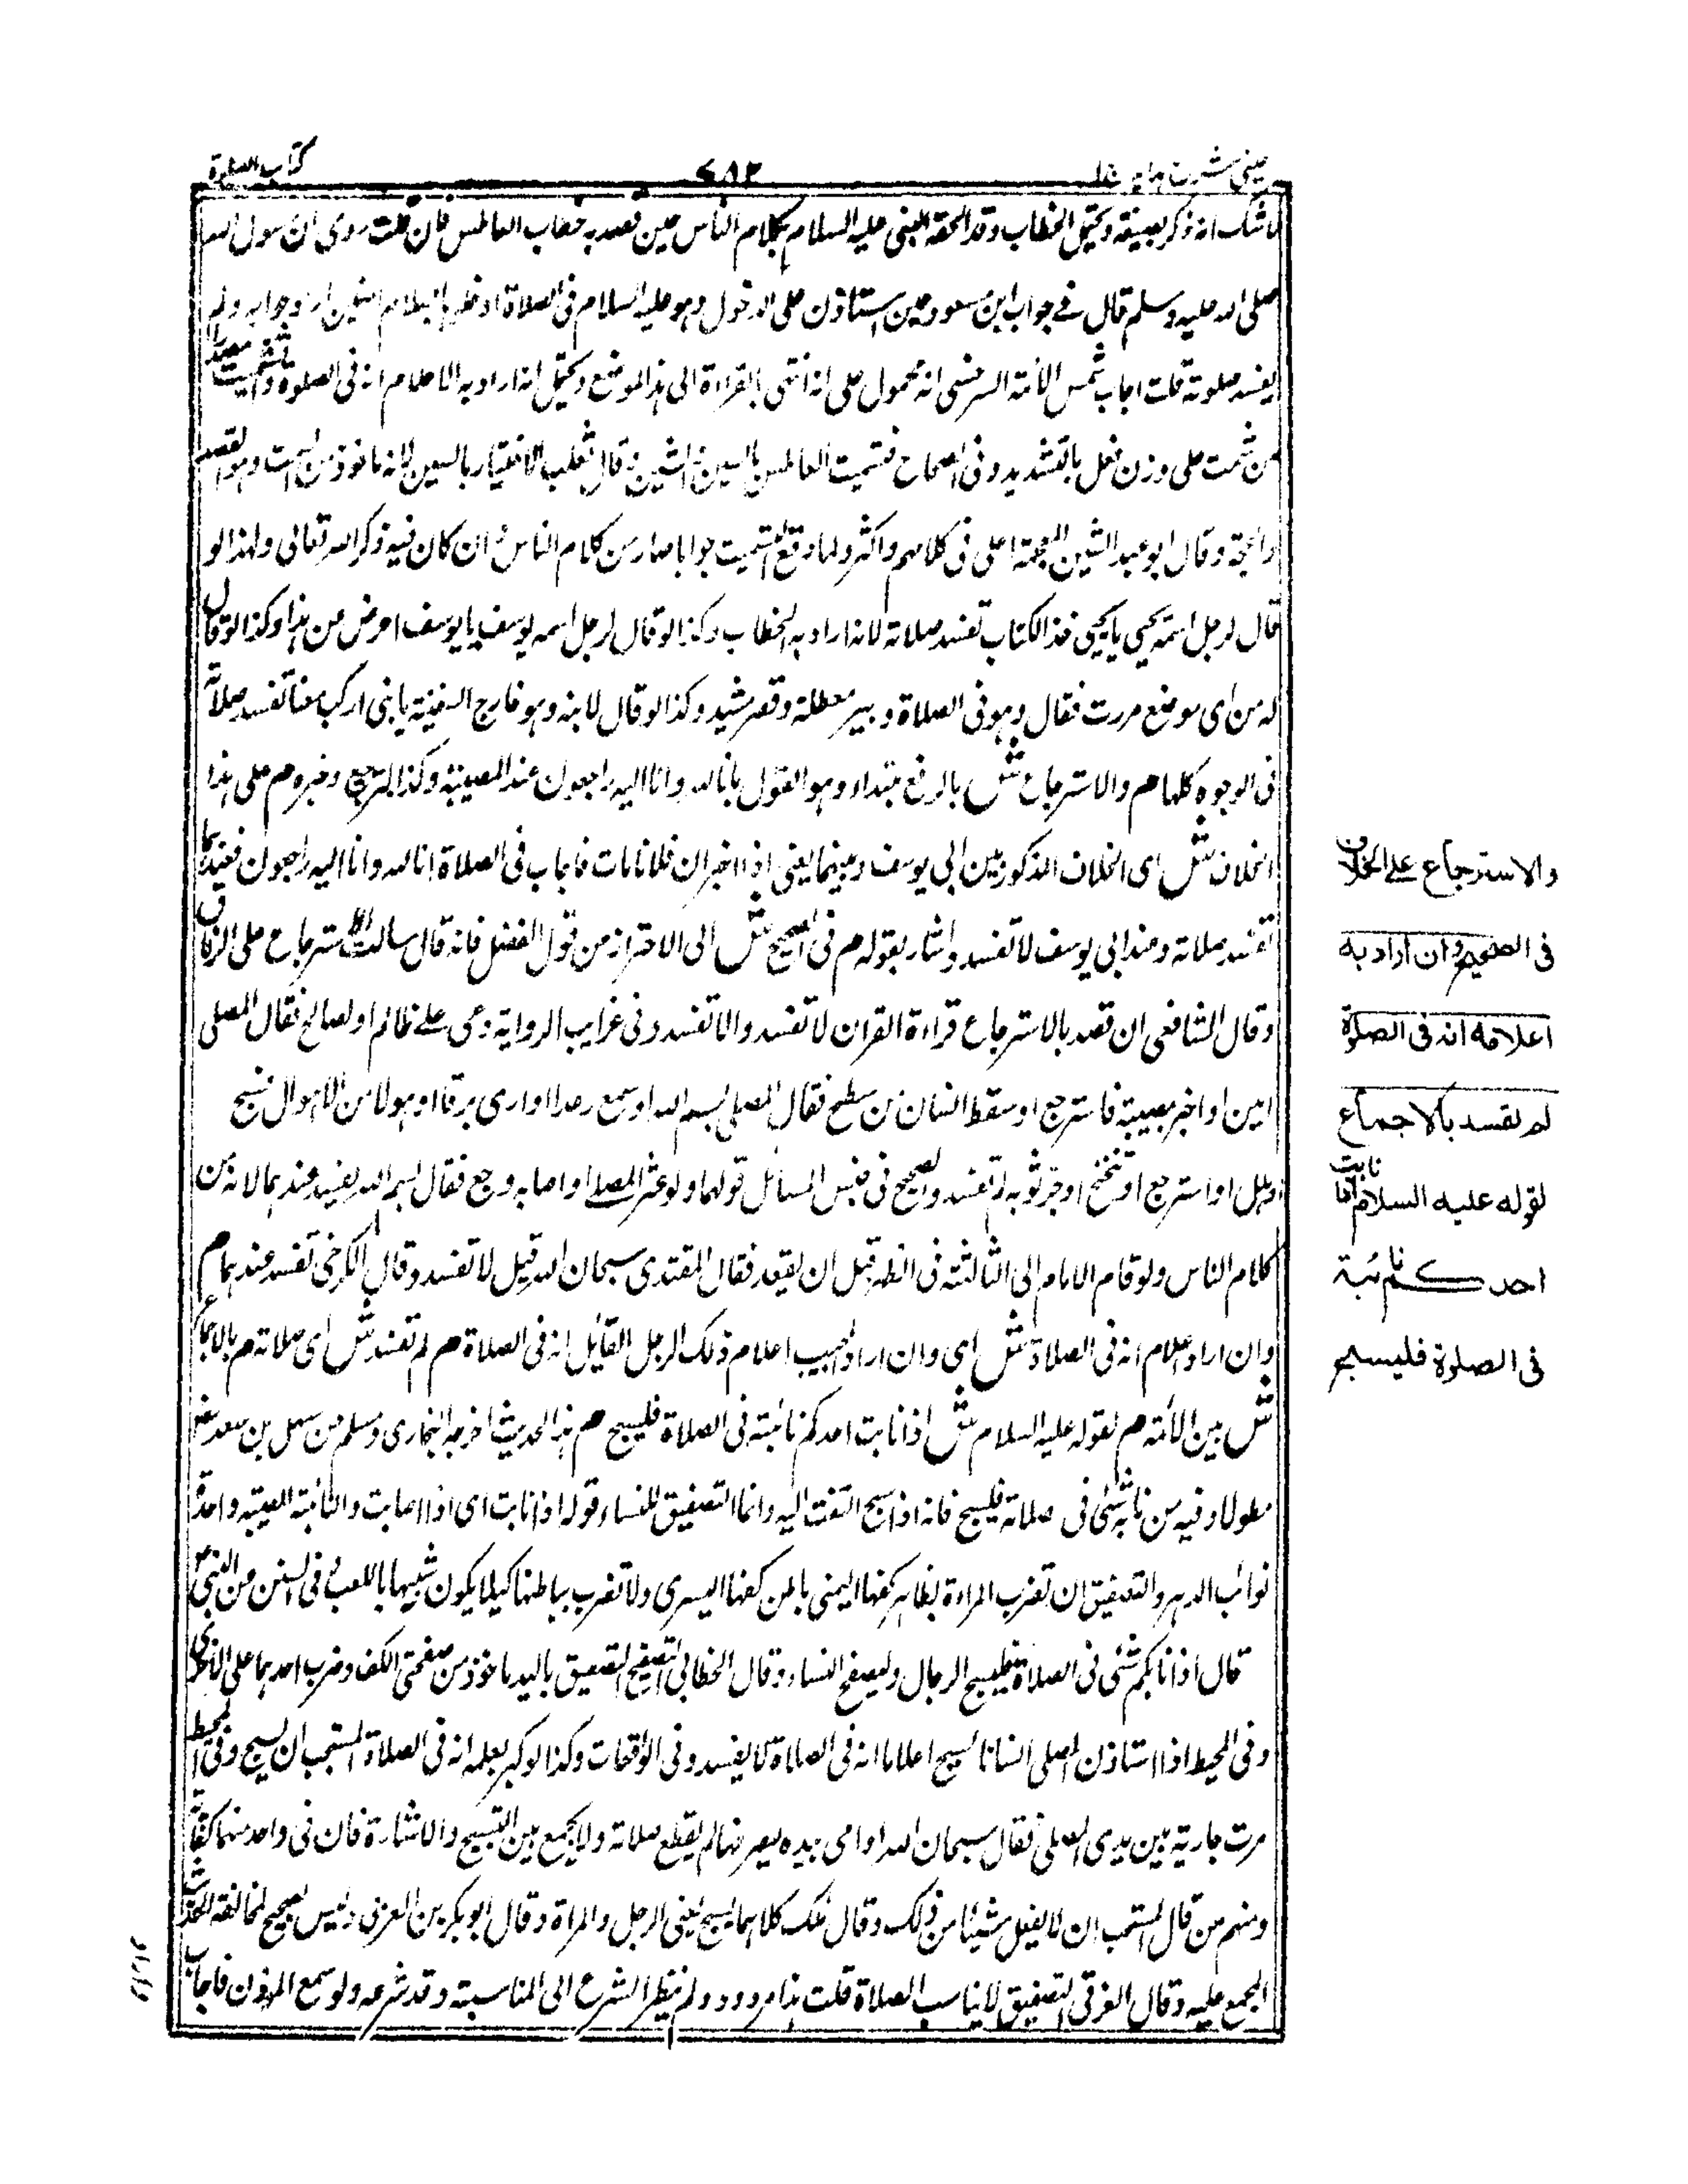 عينى شرح هدايه
٧٨٢
كتاب الصلوة
شك انه ذكر بصيغته ويحتمل الخطاب وقد الحقه النبى عليه السلام بكلام الناس حين قصد به خطاب العاطس فان قلت روى ان رسول الله
صلى الله عليه وسلم قال فى جواب ابن مسعود حين استاذن على الدخول وهو عليه السلام فى الصلاة ادخلوها بسلام امنين اراد جوابه ولم
يفسد صلوته قلت اجاب شمس الائمة السرخسى انه محمول على انه انتهى بالقراءة الى هذا الموضع ويحتمل انه اراد به الاعلام انه فى الصلوة والتشميت مصدر
من شمت على وزن فعل بالتشديد وفى الصحاح فتشميت العاطس بالسين والشين قال ثعلب الاختيار بالسين لانه ماخوذ من السمت وهو القصد
والمحجة وقال ابو عبيد الشين المعجمة اعلى فى كلامهم واكثر ولما وقع التشميت جوابا صار من كلام الناس وان كان فيه ذكر الله تعالى ولهذا لو
قال لرجل اسمه يحيى يا يحيى خذ الكتاب تفسد صلاته لانه اراد به الخطاب وكذا لو قال لرجل اسمه يوسف يا يوسف اعرض عن هذا وكذا لو قال
له من اى موضع مررت فقال وهو فى الصلاة وبير معطلة وقصر مشيد وكذا لو قال لابنه وهو خارج السفينة يا بنى اركب معنا تفسد صلاته
فى الوجوه كلها هم والاسترجاع ش بالرفع مبتداء وهو القول بانا لله وانا اليه راجعون عند المصيبة وكذا الترجيع وخبره هم على هذا
الخلاف ش اى الخلاف المذكور بين ابى يوسف وبينهما يعنى اذا اخبر ان فلانا مات فاجاب فى الصلاة انا لله وانا اليه راجعون فعندهما
تفسد صلاته وعند ابى يوسف لا تفسد واشار بقوله هم فى الصحيح ش الى الاحتراز من قول الفضل فانه قال مسالة الاسترجاع على الوفاق
وقال الشافعى ان قصد بالاسترجاع قراءة القران لا تفسد والا تفسد وفى غرايب الرواية دعى على ظالم او لصالح فقال المصلى
امين او اخبر بمصيبة فاسترجع او سقط انسان من سطح فقال المصلى بسم الله او سمع رعدا او ارى برقا او هولا من الاهوال فسبح
او هلل او استرجع او تنحنح او جر ثوبه لم تفسد والصحيح فى جنس المسائل قولهما ولو عثر المصلى او اصابه وجع فقال بسم الله يفسد عندهما لانه من
كلام الناس ولو قام الامام الى الثالثة فى الظهر قبل ان يقعد فقال المقتدى سبحان الله قيل لا تفسد وقال الكرخى تفسد عندهما هم
وان اراد اعلامه انه فى الصلاة ش اى وان اراد المجيب اعلام ذلك الرجل القائل انه فى الصلاة هم لم تفسد ش اى صلاته هم بالاجماع
ش بين الائمة هم لقوله عليه السلام ش اذا نابت احدكم نائبة فى الصلاة فليسبح هم هذا الحديث اخرجه البخارى ومسلم من سهل بن سعد
مطولا وفيه من نابه شئ فى صلاته فليسبح فانه اذا سبح التفت اليه وانما التصفيق للنساء وقوله اذا نابت اى اذا اصابت والنائبة المصيبة واحدة
نوائب الدهر والتصفيق ان تضرب المراءة بظاهر كفها اليمنى باطن كفها اليسرى ولا تضرب بباطنها كيلا يكون شبيها باللعب وفى السنن عن النبى ص
قال اذا نابكم شئ فى الصلاة فليسبح الرجال وليصفح النساء وقال الخطابى التصفيح التصفيق باليد ماخوذ من صفحتى الكف وضرب احدهما على الاخرى
وفى المحيط اذا استاذن المصلى انسانا فسبح اعلاما انه فى الصلاة لا يفسد وفى الواقعات وكذا لو كبر يعلمه انه فى الصلاة المستحب ان يسبح وفى المحيط
مرت جارية بين يدى المصلى فقال سبحان الله او اومى بيده ليصرفها لم يقطع صلاته ولا يجمع بين التسبيح والاشارة فان فى واحد منهما كفاية
ومنهم من قال المستحب ان لا يفعل شيئا من ذلك وقال مالك كلاهما يسبح يعنى الرجل والمراة وقال ابو بكر بن العربى وليس بصحيح لمخالفته الحديث
المجمع عليه وقال القرافى التصفيق لا يناسب الصلاة قلت هذا مردود ولم ينظر الشرع الى المناسبة وقد شرعه ولو سمع المؤذن فاجاب
والاسترجاع على الخلاف
فى الصحيح وان اراد به
اعلامه انه فى الصلوة
لم تفسد بالاجماع
لقوله عليه السلام اذا نابت
احدكم نائبة
فى الصلوة فليسبح